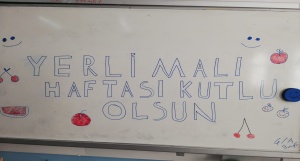 YERLİ MALI
HAFTASI KUTLU
OLSUN